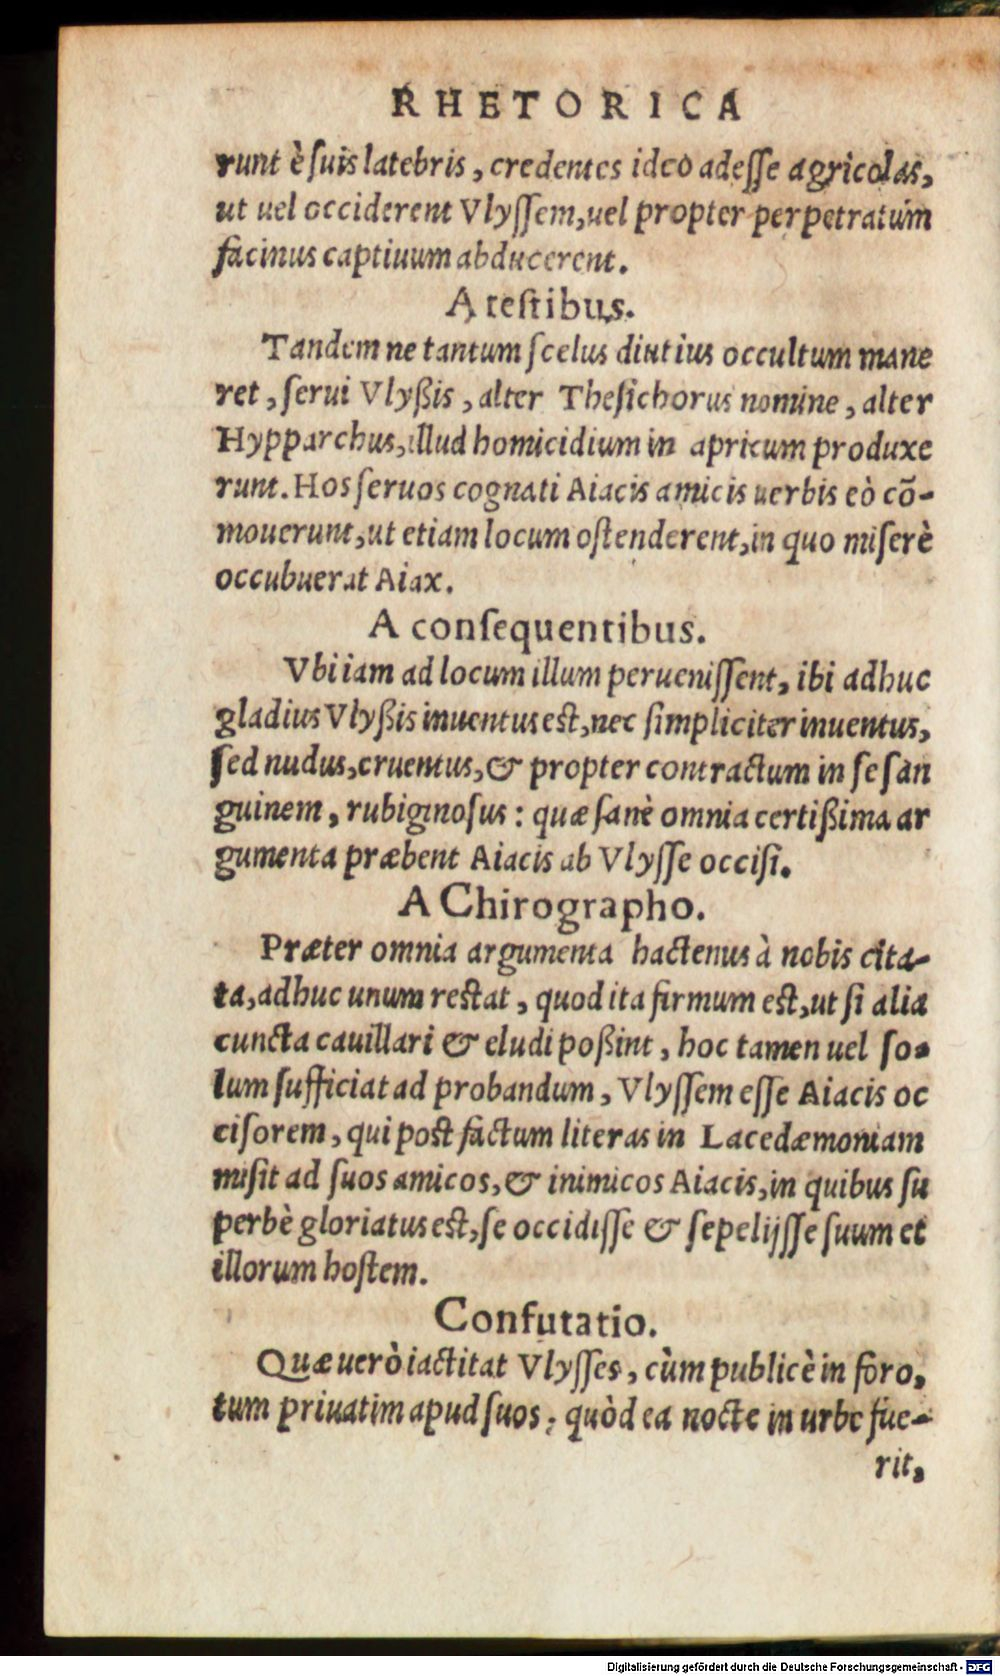 RHETORICA
runt è ſuis latebris, credentes ideo adeſſe agricolas,
ut uel occiderent Vlyſſem, uel propter perpetratum
facinus captiuum abducerent.
A teſtibus.
Tandem ne tantum ſcelus diutius occultum mane
ret, ſerui Vlyßis, alter Theſichorus nomine, alter
Hypparchus, illud homicidium in apricum produxe
runt. Hos ſeruos cognati Aiacis amicis uerbis eò cō-
mouerunt, ut etiam locum oſtenderent, in quo miſerè
occubuerat Aiax.
A conſequentibus.
Vbi iam ad locum illum perueniſſent, ibi adhuc
gladius Vlyßis inuentus eſt, nec ſimpliciter inuentus,
ſed nudus, cruentus, & propter contractum in ſe ſan
guinem, rubiginoſus: quæ ſanè omnia certißima ar
gumenta præbent Aiacis ab Vlyſſe occiſi.
A Chirographo.
Præter omnia argumenta hactenus à nobis cita-
ta, adhuc unum reſtat, quod ita firmum eſt, ut ſi alia
cuncta cauillari & eludi poßint, hoc tamen uel ſo-
lum ſufficiat ad probandum, Vlyſſem eſſe Aiacis oc
ciſorem, qui poſt factum literas in Lacedæmoniam
miſit ad ſuos amicos, & inimicos Aiacis, in quibus ſu
perbè gloriatus eſt, ſe occidiſſe & ſepelijſſe ſuum et
illorum hoſtem.
Confutatio.
Quæ uerò iactitat Vlyſſes, cùm publicè in foro,
tum priuatim apud ſuos; quòd ea nocte in urbe fue-
rit,
Digitalisierung gefördert durch die Deutsche Forschungsgemeinschaft - DFG